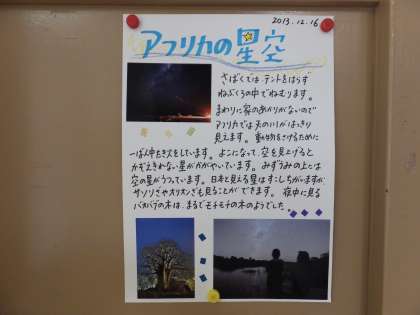 2013.12.16
アフリカの星空
さばくでは、テントをはらず
ねぶくろの中でねむります。
まわりに家のあかりがないので
アフリカでは天の川がはっきり
見えます。動物をさけるために
一ばん中たき火をしています。よこになって、空を見上げると
かぞえきれない星がかがやいています。みずうみの上には
空の星がうつっています。日本と見える星はすこしちがいますが、
サソリざやオリオンざも見ることができます。夜中に見る
バオバブの木は、まるでモチモチの木のようでした。